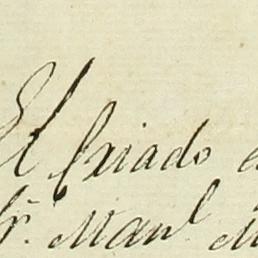 El Criado e
Sr. Manl. M